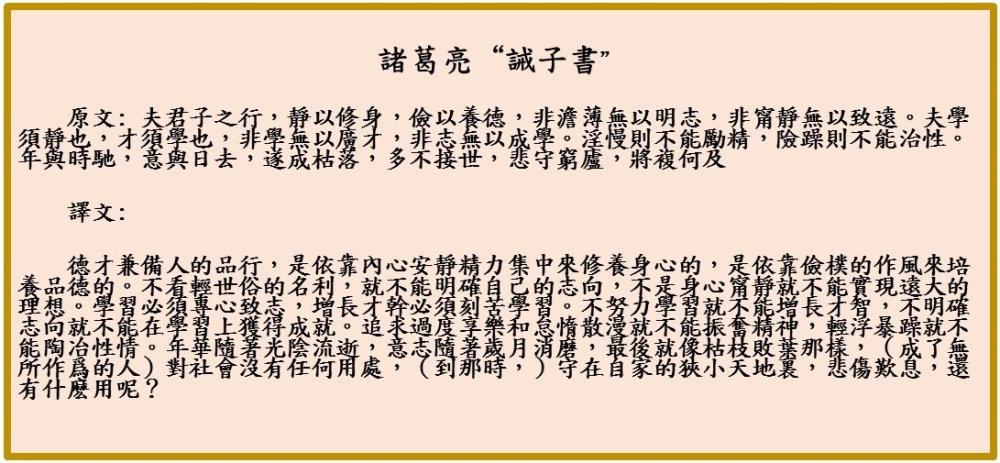 諸葛亮“誡子書”
原文: 夫君子之行，靜以修身，儉以養德，非澹薄無以明志，非甯靜無以致遠。夫學
須靜也，才須學也，非學無以廣才，非志無以成學。淫慢則不能勵精，險躁則不能治性。
年與時馳，意與日去，遂成枯落，多不接世，悲守窮廬，將複何及
譯文:
德才兼備人的品行，是依靠內心安靜精力集中來修養身心的，是依靠儉樸的作風來培
養品德的。不看輕世俗的名利，就不能明確自己的志向，不是身心甯靜就不能實現遠大的
理想。學習必須專心致志，增長才幹必須刻苦學習。不努力學習就不能增長才智，不明確
志向就不能在學習上獲得成就。追求過度享樂和怠惰散漫就不能振奮精神，輕浮暴躁就不
能陶冶性情。年華隨著光陰流逝，意志隨著歲月消磨，最後就像枯枝敗葉那樣，（成了無
所作爲的人）對社會沒有任何用處，（到那時，）守在自家的狹小天地裏，悲傷歎息，還
有什麽用呢？